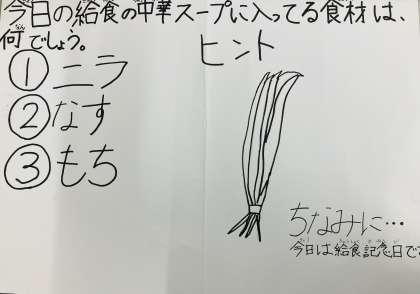 今日の給食の中華スープに入ってる食材は、
何でしょう。
ヒント
①ニラ
②なす
③もち
ちなみに…
今日は給食記念日で